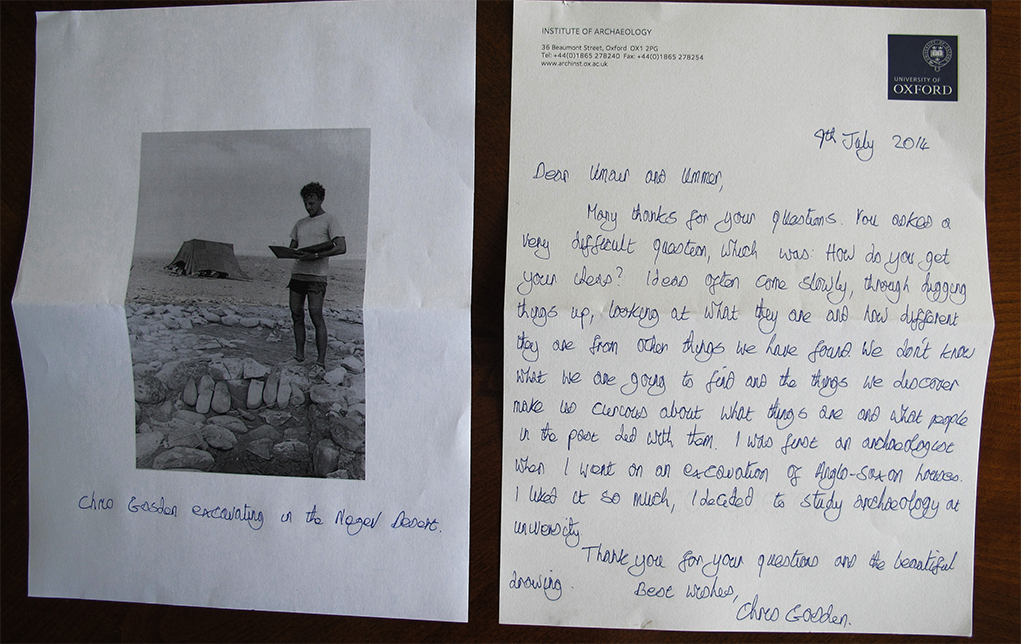 Chris Gosden excavating in the Negev Desert.
INSTITUTE OF ARCHAEOLOGY
36 Beaumont Street, Oxford OX1 2PG
Tel: +44(0)1865 278240 Fax: +44(0)1865 278254
www.archinst.ox.ac.uk
UNIVERSITY OF
OXFORD
9th July 2014
Dear Umair and Ummer,
Many thanks for your questions. You asked a
very difficult question, which was: How do you get
your ideas? Ideas often come slowly, through digging
things up, looking at what they are and how different
they are from other things we have found. We don't know
what we are going to find and the things we discover
make us curious about what things are and what people
in the past did with them. I was first an archaeologist
when I went on an excavation of Anglo-Saxon houses.
I liked it so much, I decided to study archaeology at
university
Thank you for your questions and the beautiful
drawing.
Best wishes,
Chris Gosden.